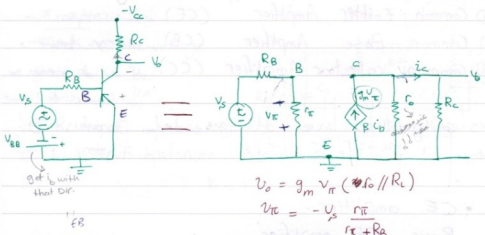 -Vcc
Rc
C
Vo
RB
B
E
Vs
VBB
get ib with
that Dir.
EB
RB
B
Vs
Vπ
rπ
E
C
gmVπ
β ib
ic
ro
Rc
Vo
vo = gm vπ (ro // RL)
vπ = -vs rπ / rπ + RB